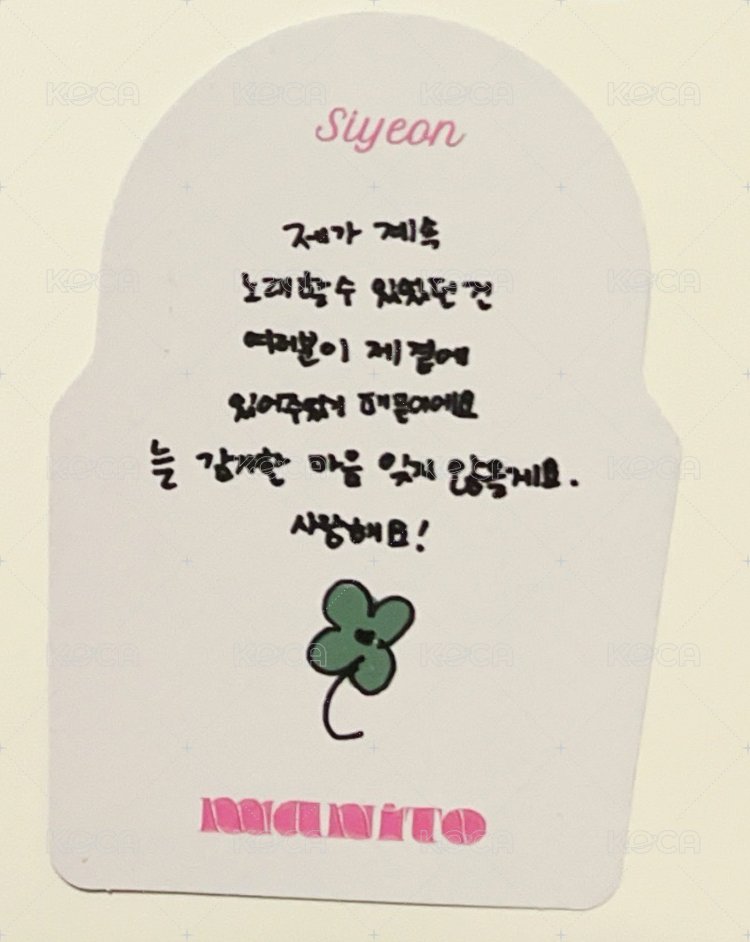 Siyeon
제가 계속
노래할 수 있었던 건
여러분이 제 곁에
있어주었기 때문이에요
늘 감사한 마음 잊지 않을게요.
사랑해요!
manito